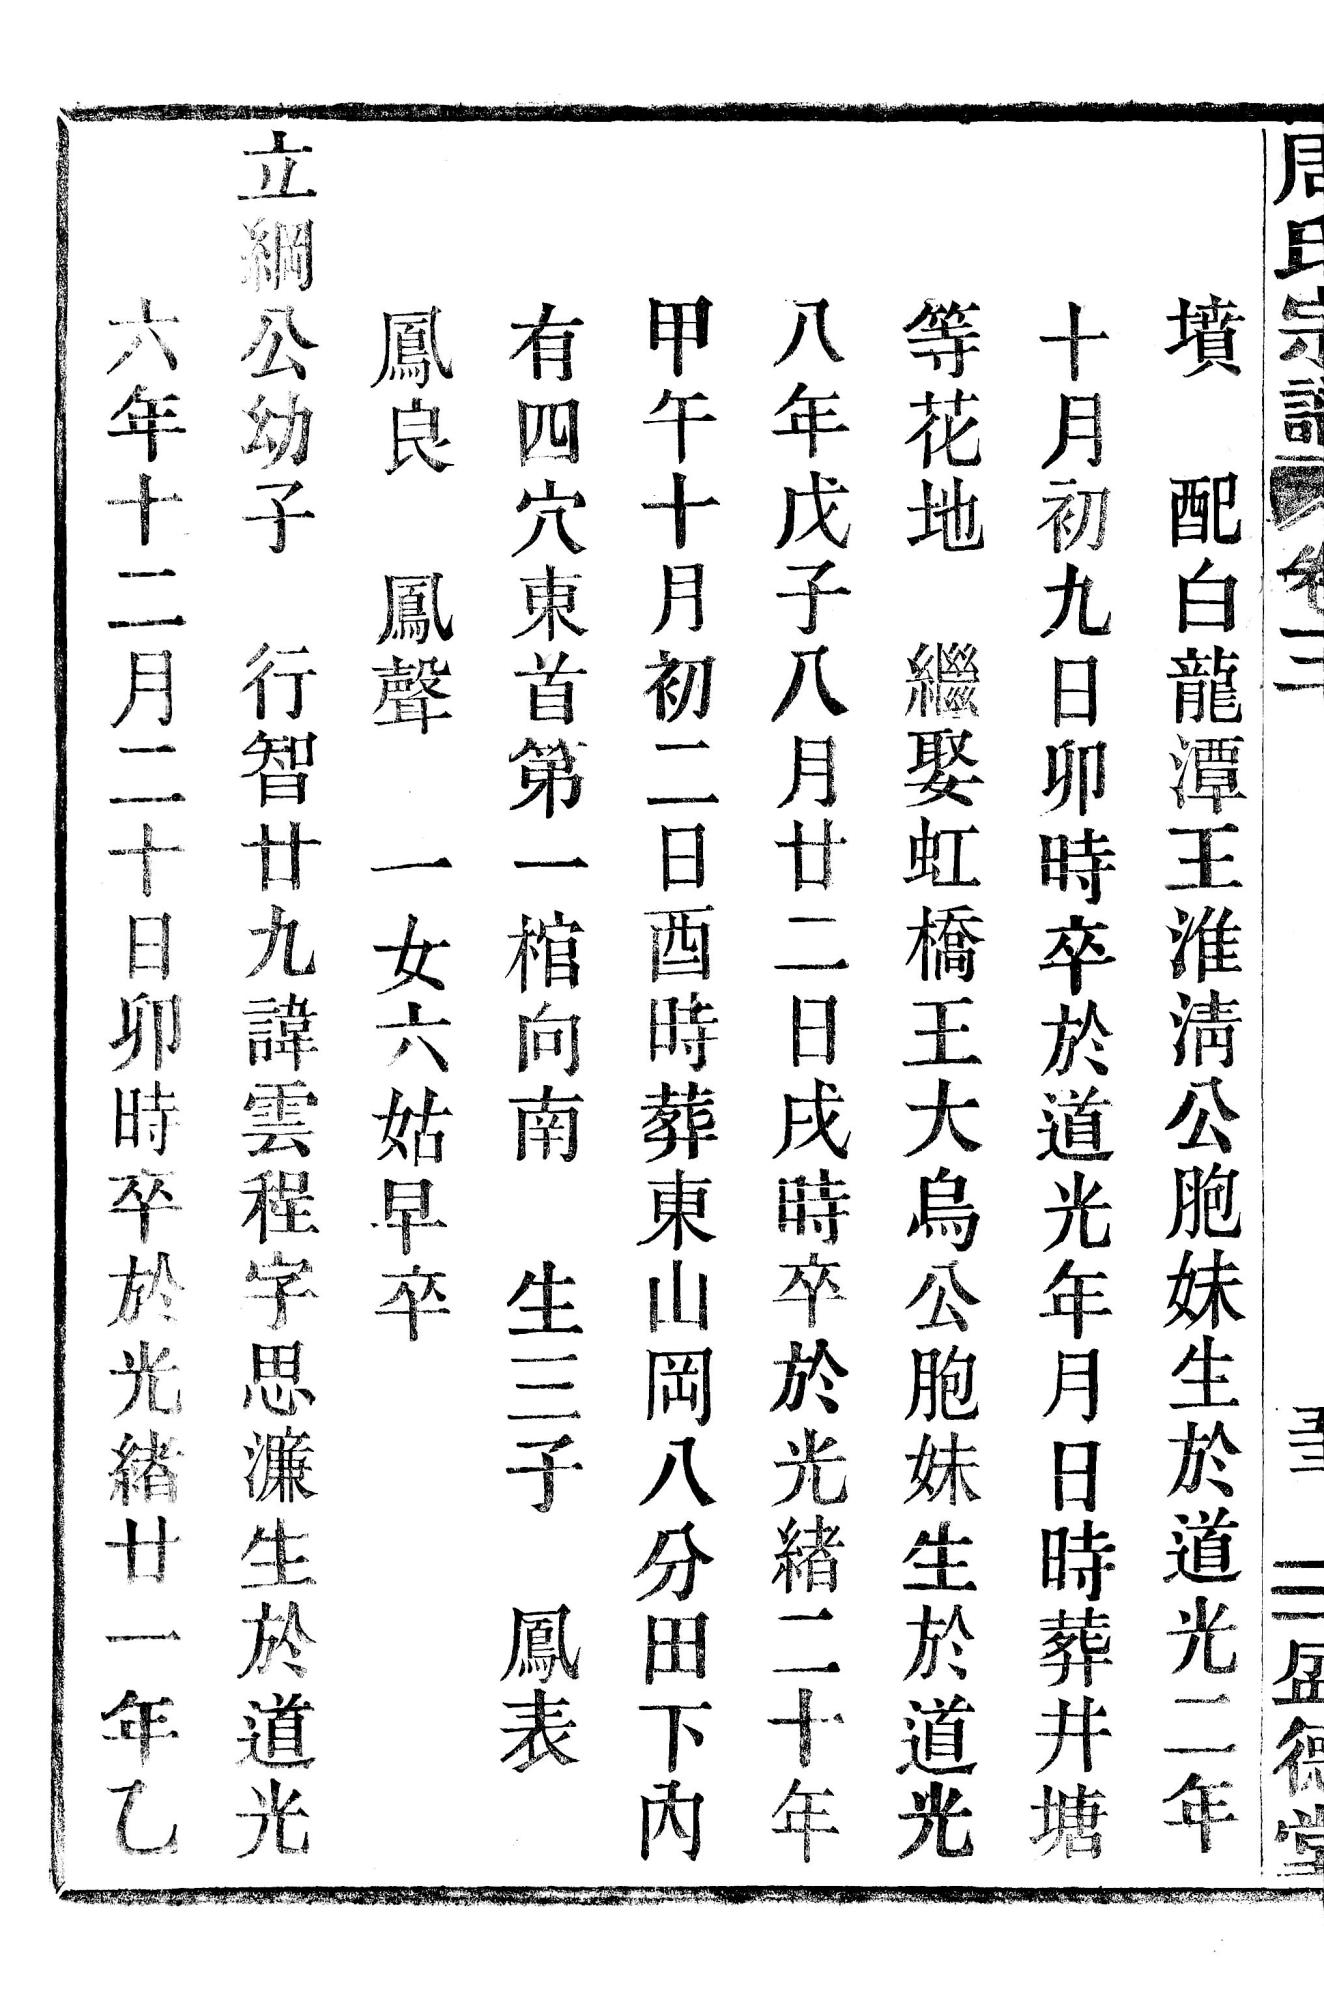 周氏宗譜 卷三 盛德堂
墳 配白龍潭王淮淸公胞妹生於道光二年
十月初九日卯時卒於道光年月日時葬井塘
等花地 繼娶虹橋王大烏公胞妹生於道光
八年戊子八月廿二日戌時卒於光緒二十年
甲午十月初二日酉時葬東山岡八分田下內
有四穴東首第一棺向南 生三子 鳳表
鳳良 鳳聲 一女六姑早卒
立綱公幼子 行智廿九諱雲程字思濂生於道光
六年十二月二十日卯時卒於光緒廿一年乙